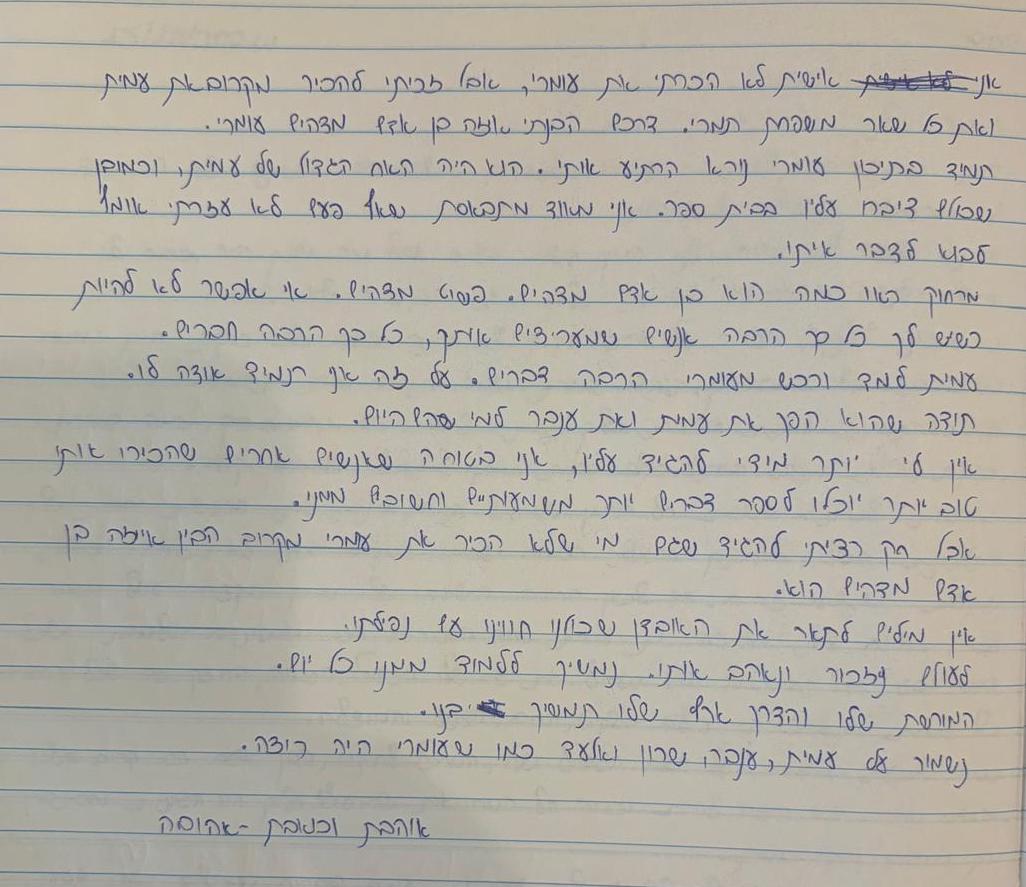 אני אישית לא הכרתי את עומרי, אבל זכיתי להכיר מקרוב את עמית
ואת כל שאר משפחת תמרי. דרכם הבנתי איזה בן אדם מדהים עומרי.
תמיד בתיכון עומרי נורא הרתיע אותי. הוא היה האח הגדול של עמית, וכמובן
שכולם דיברו עליו בבית ספר. אני מאוד מתבאסת שאף פעם לא עזרתי אומץ
לבוא לדבר איתו.
מרחוק ראו כמה הוא בן אדם מדהים. פשוט מדהים. אי אפשר לא להיות
כשיש לך כל כך הרבה אנשים שמעריצים אותך, כל כך הרבה חברים.
עמית למד ורכש מעומרי הרבה דברים. על זה אני תמיד אודה לו.
תודה שהוא הפך את עמית ואת ענבר למי שהם היום.
אין לי יותר מידי להגיד עליו, אני בטוחה שאנשים אחרים שהכירו אותו
טוב יותר יוכלו לספר דברים יותר משמעותיים וחשובים ממני.
אבל רק רציתי להגיד שגם מי שלא הכיר את עומרי מקרוב הבין איזה בן
אדם מדהים הוא.
אין מילים לתאר את האובדן שכולנו חווינו עם נפילתו.
לעולם נזכור ונאהב אותו. נמשיך ללמוד ממנו כל יום.
המורשת שלו והדרך ארץ שלו תמשיך בנו.
נשמור על עמית, ענבר, שרון ואלעד כמו שעומרי היה רוצה.
אוהבת וכואבת -